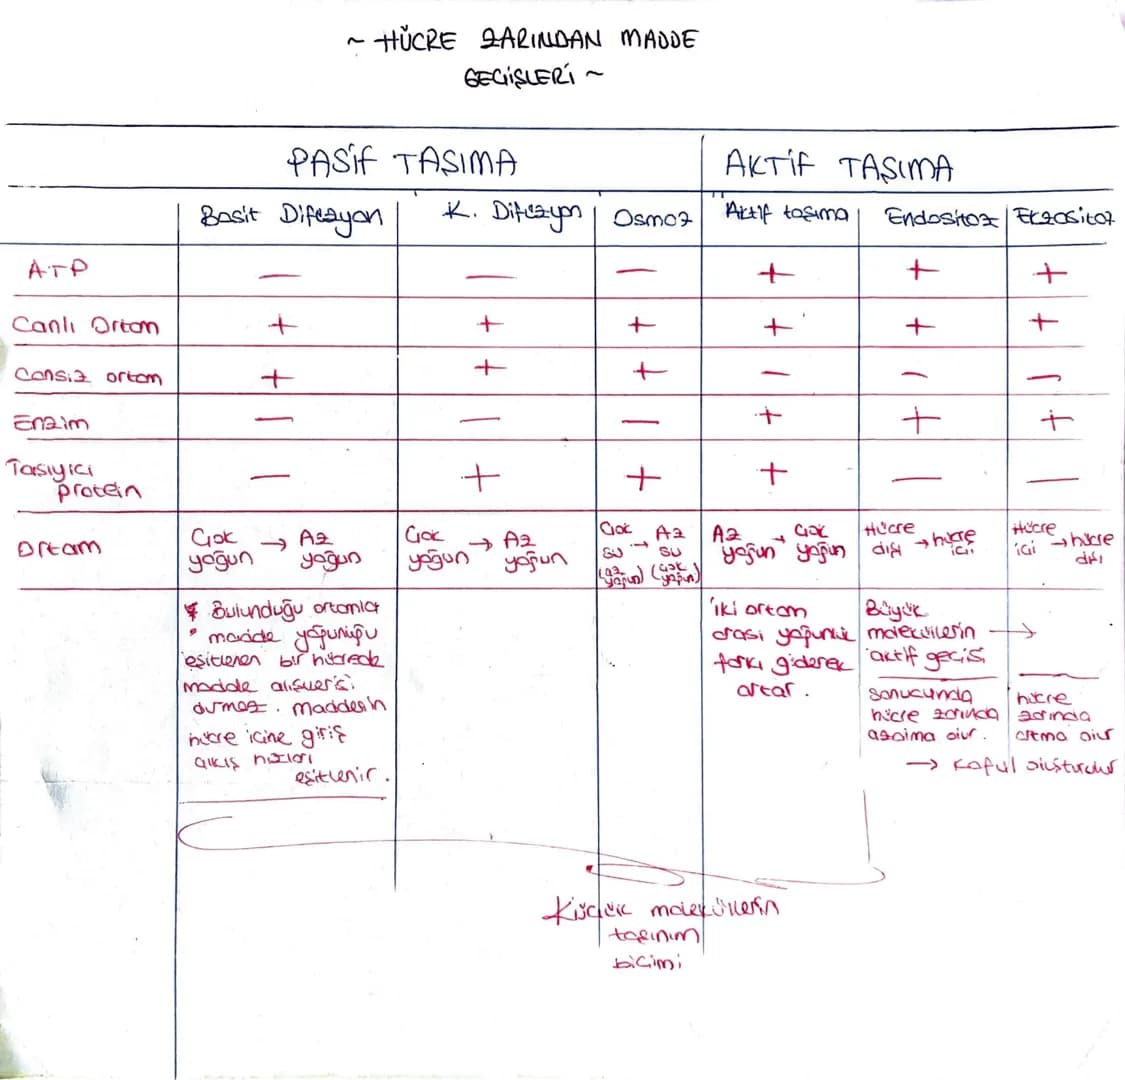 ~ HÜCRE ZARINDAN MADDE
GEÇİŞLERİ ~
PASİF TAŞIMA
AKTİF TAŞIMA
Basit Difüzyon
K. Difüzyon
Osmoz
Aktif taşıma
Endositoz
Ekzositoz
ATP — — — + + +
Canlı Ortam + + + + + +
Cansız ortam + + + — — —
Enzim — — — + + +
Taşıyıcı
protein — + + + — —
Ortam
Çok yoğun → Az yoğun
Çok yoğun → Az yoğun
Çok su → Az su
(az yoğun) (çok yoğun)
Az yoğun → Çok yoğun
Hücre dışı → hücre içi
Hücre içi → hücre dışı
* Bulunduğu ortamla
madde yoğunluğu
eşitlenen bir hücrede
madde alışverişi
durmaz. maddesin
hücre içine giriş
çıkış hızları
eşitlenir.
İki ortam
arası yoğunluk
farkı giderek
artar.
Büyük
moleküllerin →
aktif geçişi
sonucunda
hücre zarında
azalma olur.
hücre
zarında
artma olur
→ Koful oluşturulur
Küçük moleküllerin
taşınım
biçimi